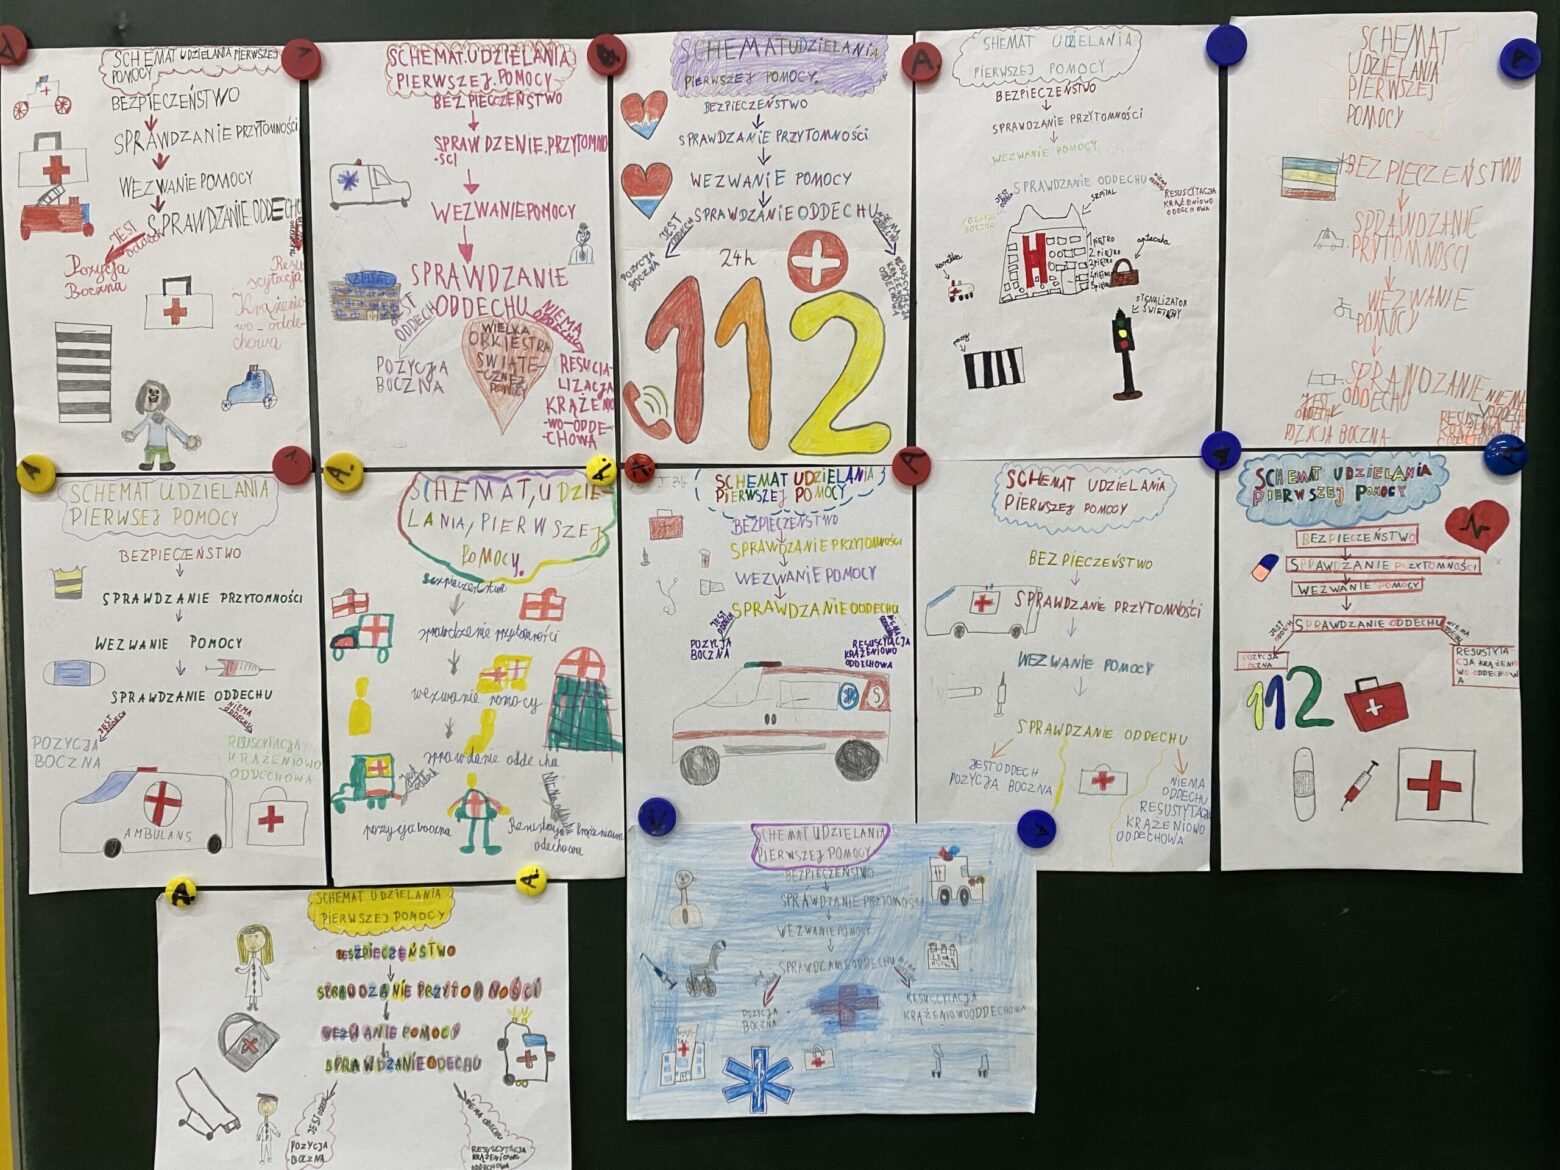 SCHEMAT UDZIELANIA PIERWSZEJ
POMOCY
BEZPIECZEŃSTWO
SPRAWDZANIE PRZYTOMNOŚCI
WEZWANIE POMOCY
SPRAWDZANIE ODDECHU
JEST
Pozycja
Boczna
Resu
scytacja
Krążenio
wo-odde-
chowa
SCHEMAT.UDZIELANIA
PIERWSZEJ.POMOCY
BEZPIECZEŃSTWO
SPRAWDZENIE.PRZYTOMNO-
-ŚCI
WEZWANIE POMOCY
SZPITAL
SPRAWDZANIE
ODDECHU
JEST
ODDECH
NIEMA
ODDECHU
POZYCJA
BOCZNA
WIELKA
ORKIESTRA
ŚWIĄTE-
CZNEJ
POMOCY
RESUCIA-
LIZACJA
KRĄŻENIO
-WO-ODDE-
-CHOWA
SCHEMAT UDZIELANIA
PIERWSZEJ POMOCY.
BEZPIECZEŃSTWO
SPRAWDZANIE PRZYTOMNOŚCI
WEZWANIE POMOCY
SPRAWDZANIE ODDECHU
JEST
ODDECH
NIEMA
ODDECHU
POZYCJA
BOCZNA
24h
112
SHEMAT UDZIELANIA
PIERWSZEJ POMOCY
BEZPIECZEŃSTWO
SPRAWDZANIE PRZYTOMNOŚCI
WEZWANIE POMOCY
SPRAWDZANIE ODDECHU
JEST
NIEMA
RESUSCITACJA
KRĄŻENIOWO
ODDECHOWA
SZPITAL
H
1 PIĘTRO
2 PIĘTRO
apteczka
karetka
SIGNALIZATOR
ŚWIETLNY
pasy
SCHEMAT
UDZIELANIA
PIERWSZEJ
POMOCY
BEZPIECZEŃSTWO
SPRAWDZANIE
PRZYTOMNOŚCI
WEZWANIE
POMOCY
SPRAWDZANIE
ODDECHU
JEST
ODDECH
POZYCJA BOCZNA
SCHEMAT UDZIELANIA
PIERWSEJ POMOCY
BEZPIECZEŃSTWO
SPRAWDZANIE PRZYTOMNOŚCI
WEZWANIE POMOCY
SPRAWDZANIE ODDECHU
JEST
ODDECH
NIEMA
ODDECHU
POZYCJA
BOCZNA
RESUSCYTACJA
KRĄŻENIOWO
ODDECHOWA
AMBULANS
SCHEMAT, UDZIE-
LANIA, PIERWSZEJ
POMOCY.
bezpieczeństwo
sprawdzenie przytomności
wezwanie pomocy
sprawdzanie oddechu
jest
oddech
pozycja boczna
Resuscytacja krążeniowo
oddechowa
SCHEMAT UDZIELANIA
PIERWSZEJ POMOCY
BEZPIECZEŃSTWO
SPRAWDZANIE PRZYTOMNOŚCI
WEZWANIE POMOCY
SPRAWDZANIE ODDECHU
JEST
ODDECH
NIEMA
ODDECHU
POZYCJA
BOCZNA
RESUSCYTACJA
KRĄŻENIOWO
ODDECHOWA
S
SCHEMAT UDZIELANIA
PIERWSZEJ POMOCY
BEZPIECZEŃSTWO
SPRAWDZANIE PRZYTOMNOŚCI
WEZWANIE POMOCY
SPRAWDZANIE ODDECHU
JEST ODDECH
POZYCJA BOCZNA
NIEMA
ODDECHU
RESUSTYTACJA
KRĄŻENIOWO
ODDECHOWA
SCHEMAT UDZIELANIA
PIERWSZEJ POMOCY
BEZPIECZEŃSTWO
SPRAWDZANIE PRZYTOMNOŚCI
WEZWANIE POMOCY
SPRAWDZANIE ODDECHU
JEST
ODDECH
NIEMA
ODDECHU
POZYCJA
BOCZNA
RESUSTYTA-
CJA KRĄŻENIO
WO ODDECHOW
A
112
SCHEMAT UDZIELANIA
PIERWSZEJ POMOCY
BESZPIECZEŃSTWO
SPRAWDZANIE PRZYTOMNOŚCI
WEZWANIE POMOCY
SPRAWDZANIE ODECHU
JEST ODECH
NIEMA ODECHU
POZYCJA
BOCZNA
RESUSCYTACJA
KRĄŻENIOWO
ODDECHOWA
SCHEMAT UDZIELANIA
PIERWSZEJ POMOCY
BEZPIECZEŃSTWO
SPRAWDZANIE PRZYTOMNOŚCI
WEZWANIE POMOCY
SPRAWDZANIE ODDECHU
POZYCJA
BOCZNA
RESUSCYTACJA
KRĄŻENIOWOODDECHOWA